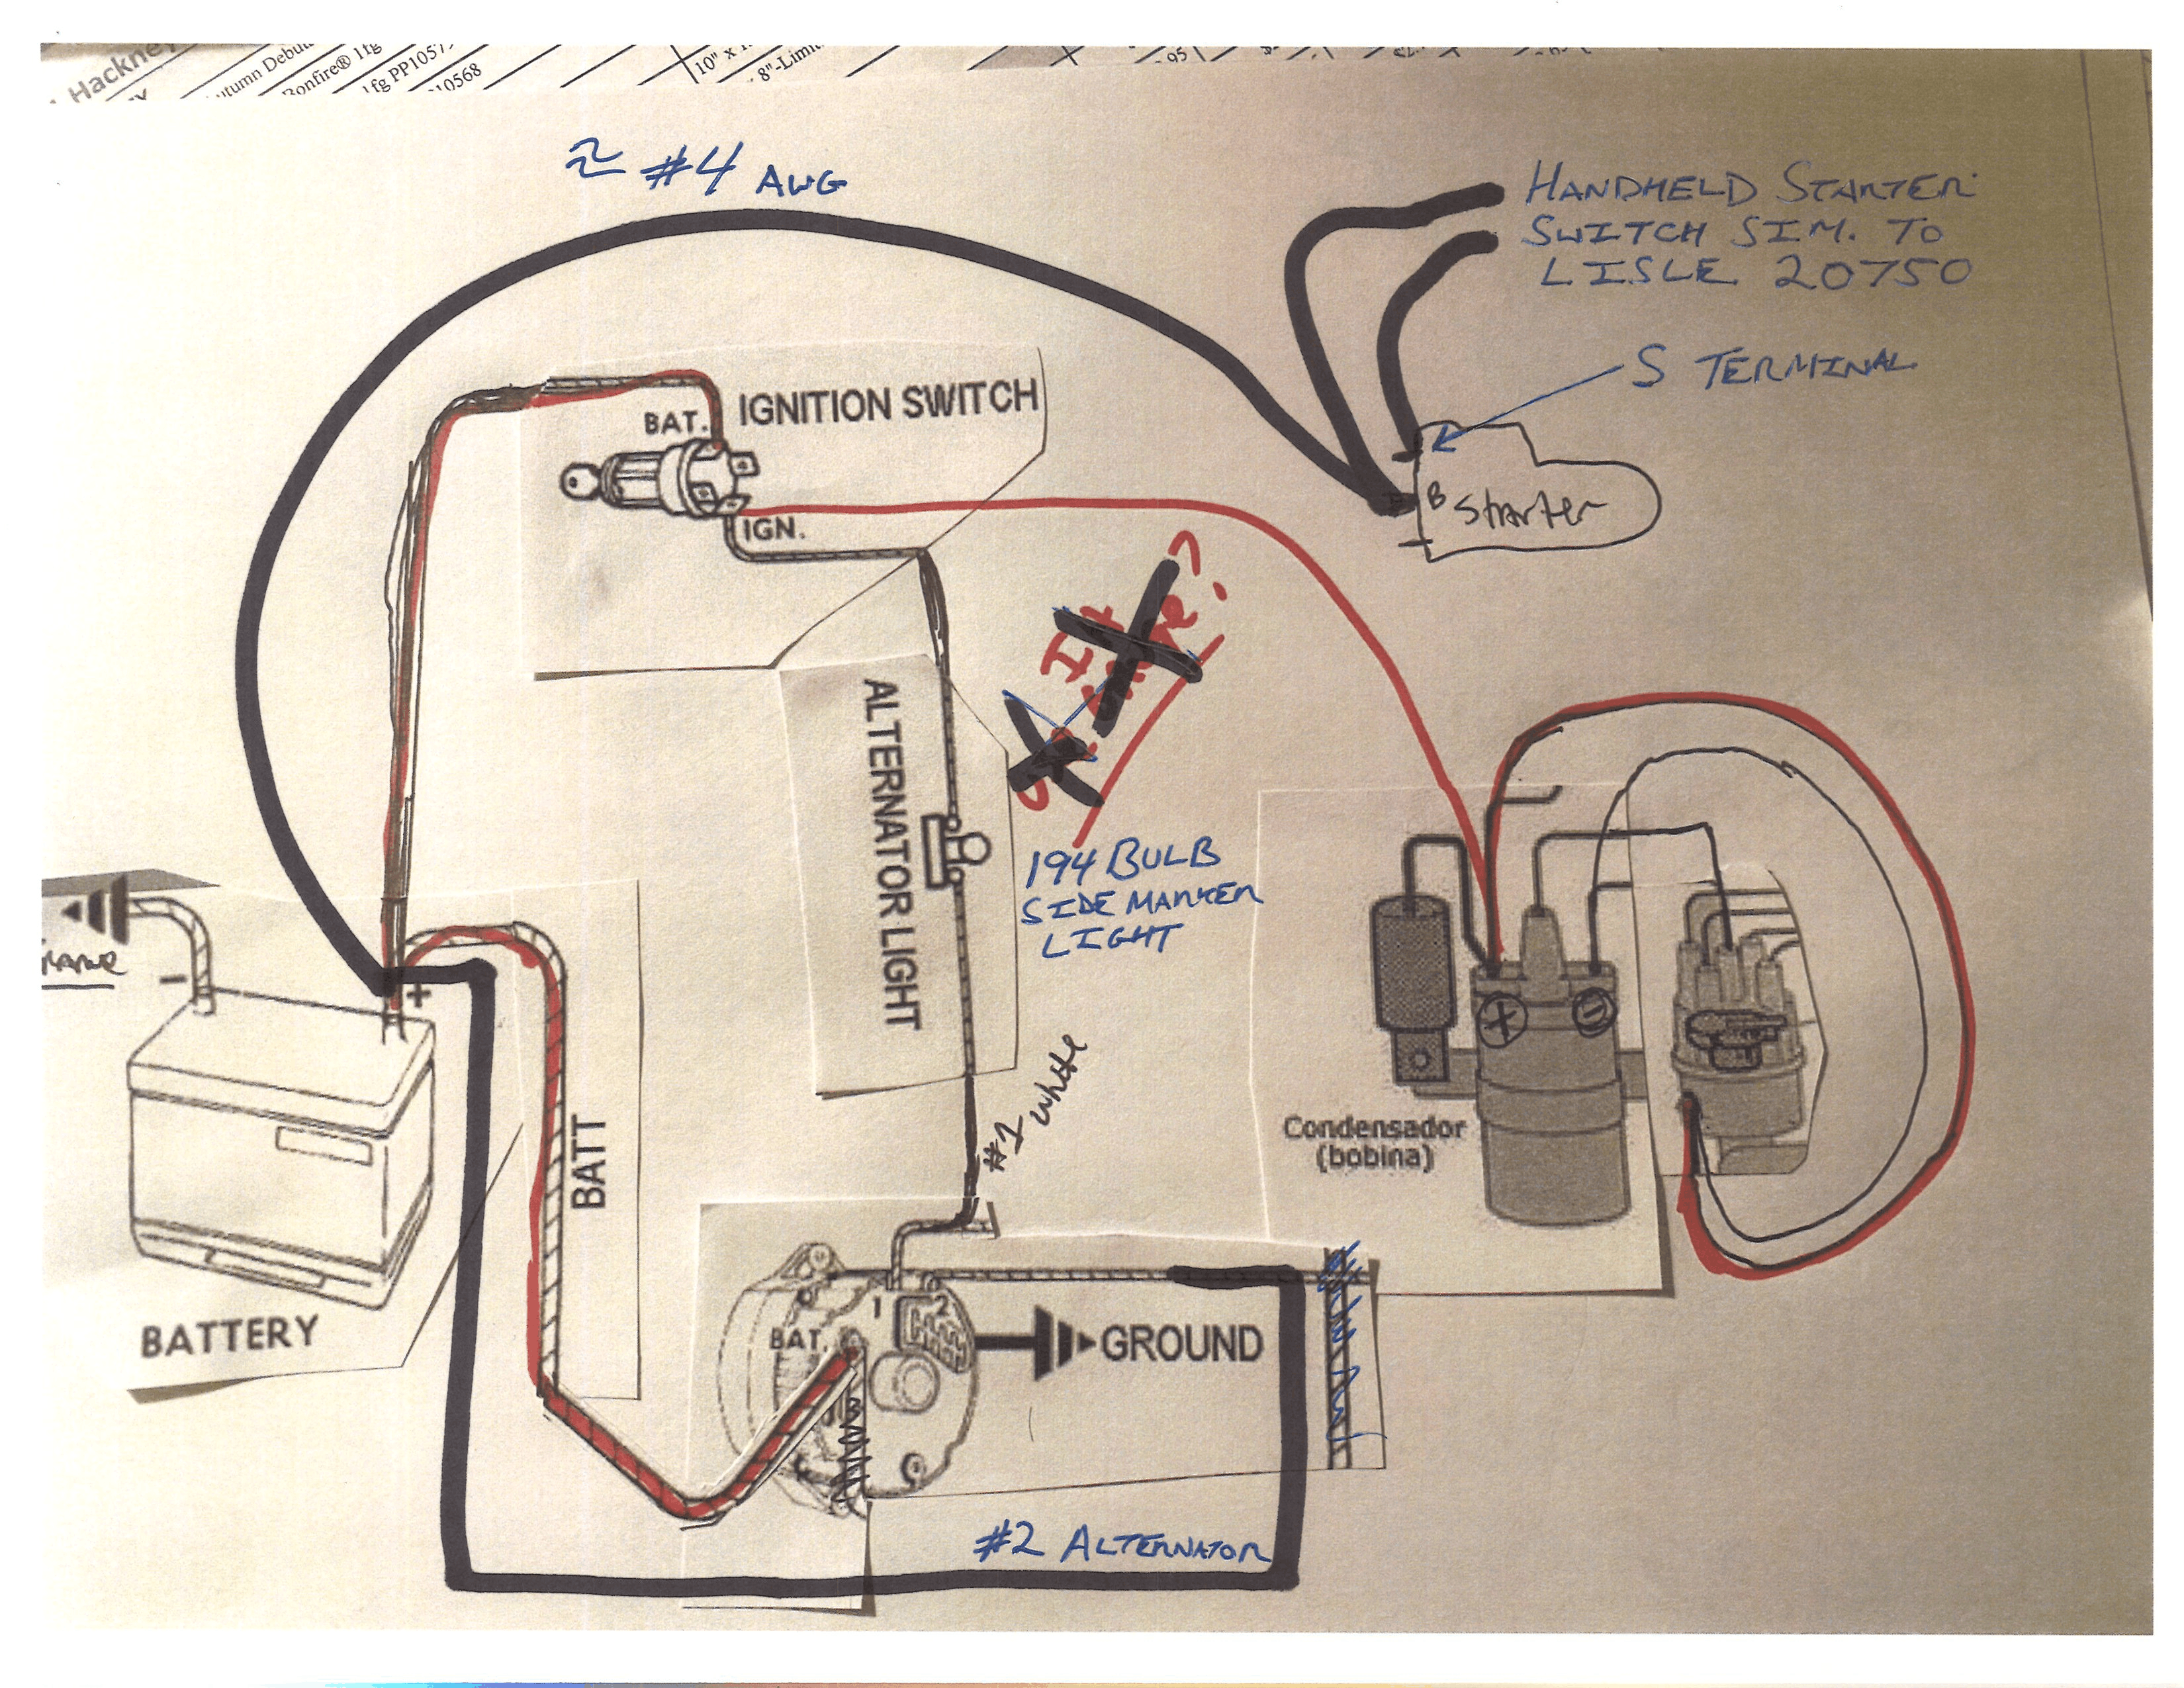 Hackney
utumn Debu
Bonfire® 1fg
1fg PP1057
10568
10" x 1
8"-Limi
95
≈ #4 AWG
HANDHELD STARTER
SWITCH SIM. TO
LISLE 20750
S TERMINAL
BAT.
IGNITION SWITCH
IGN.
B Starter
It
?
ALTERNATOR LIGHT
194 BULB
SIDE MARKER
LIGHT
-
+
BATT
#1 white
+
-
Condensador
(bobina)
BATTERY
1
2
BAT.
GROUND
#2 ALTERNATOR